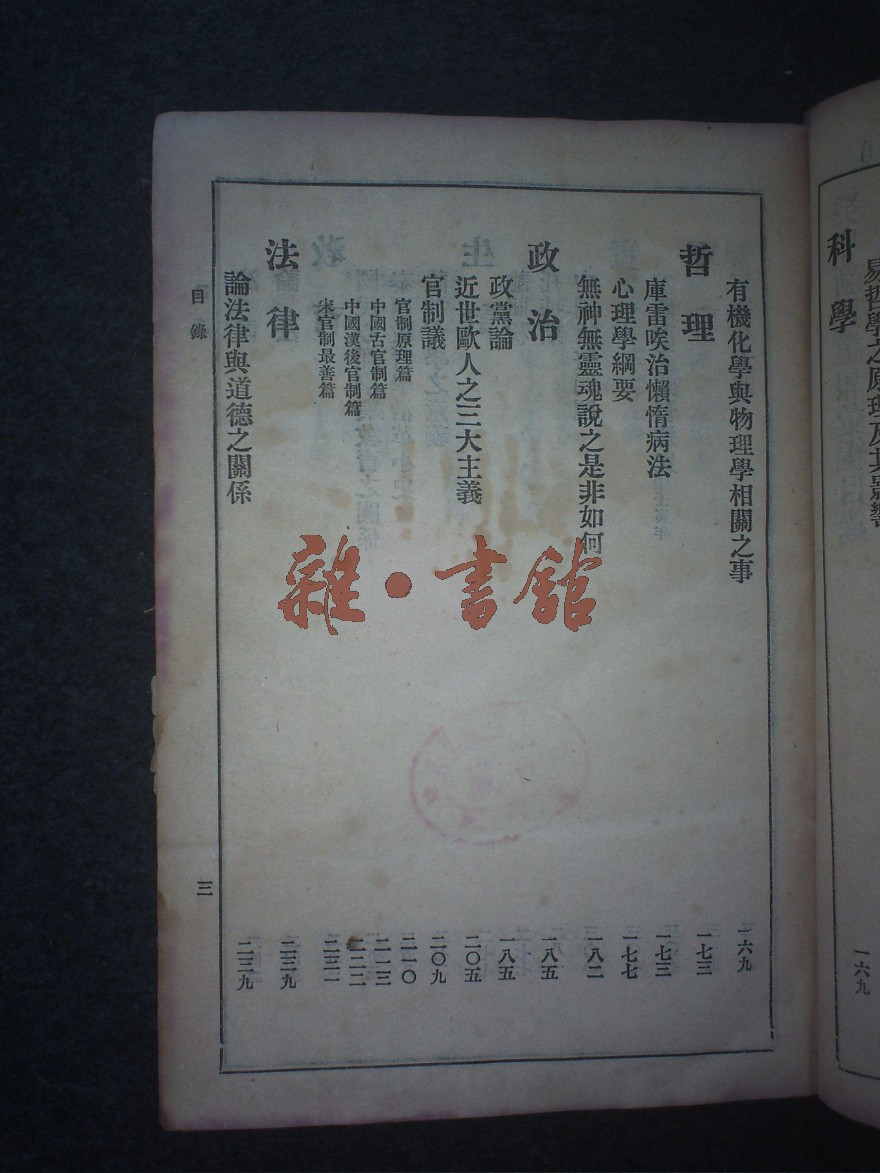 易哲學之原理及其影響
科學
一六九
有機化學與物理學相關之事 一六九
哲理 一七三
庫雷唉治懶惰病法 一七三
心理學綱要 一七七
無神無靈魂說之是非如何 一八二
政治 一八五
政黨論 一八五
近世歐人之三大主義 二〇五
官制議 二〇九
官制原理篇 二一〇
中國古官制篇 二一三
中國漢後官制篇 二二二
宋官制最善篇 二三一
法律 二三九
論法律與道德之關係 二三九
目錄
三
雜·書館